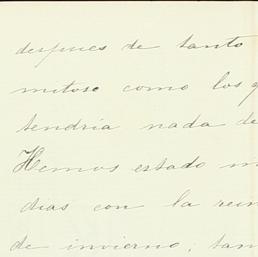 despues de tanto
mitoso como los
tendria nada de
Hemos estado
dias con la
de invierno,